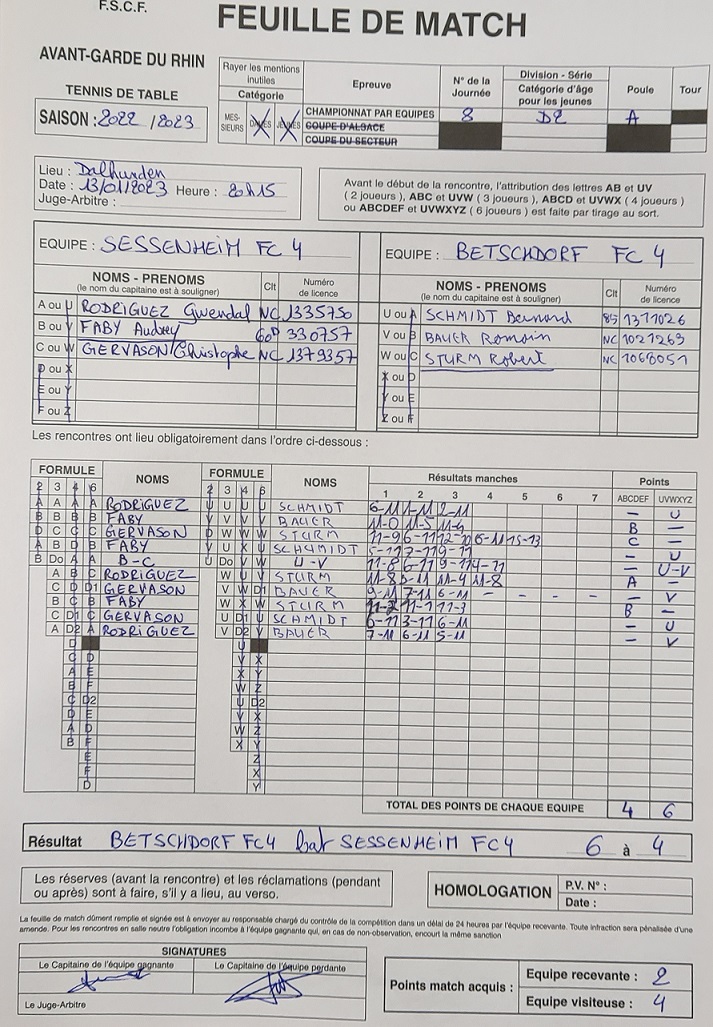 F.S.C.F.
FEUILLE DE MATCH
AVANT-GARDE DU RHIN
TENNIS DE TABLE
SAISON : 2022 / 2023
Rayer les mentions inutiles
Catégorie
MES-SIEURS DAMES JEUNES
Epreuve
CHAMPIONNAT PAR EQUIPES
COUPE D'ALSACE
COUPE DU SECTEUR
N° de la Journée
8
Division - Série
Catégorie d'âge
pour les jeunes
D2
Poule
A
Tour
Lieu : Dalhunden
Date : 13/01/2023 Heure : 20h15
Juge-Arbitre :
Avant le début de la rencontre, l'attribution des lettres AB et UV
( 2 joueurs ), ABC et UVW ( 3 joueurs ), ABCD et UVWX ( 4 joueurs )
ou ABCDEF et UVWXYZ ( 6 joueurs ) est faite par tirage au sort.
EQUIPE : SESSENHEIM FC 4
NOMS - PRENOMS Clt Numéro de licence
(le nom du capitaine est à souligner)
A ou U RODRIGUEZ Gwendal NC 1335750
B ou V FABY Audrey 60D 330757
C ou W GERVASON Christophe NC 1379357
D ou X
E ou Y
F ou Z
EQUIPE : BETSCHDORF FC 4
NOMS - PRENOMS Clt Numéro de licence
(le nom du capitaine est à souligner)
U ou A SCHMIDT Bernard 85 1311026
V ou B BAUER Romain NC 1021263
W ou C STURM Robert NC 1068051
X ou D
Y ou E
Z ou F
Les rencontres ont lieu obligatoirement dans l'ordre ci-dessous :
FORMULE NOMS FORMULE NOMS Résultats manches Points
2 3 4 6 2 3 4 6 1 2 3 4 5 6 7 ABCDEF UVWXYZ
A A A A RODRIGUEZ U U U U SCHMIDT 6-11 1-11 2-11 – U
B B B B FABY V V V V BAUER 11-0 11-5 11-4 B –
D C C C GERVASON D W W W STURM 11-9 6-11 12-10 6-11 15-13 C –
A B D B FABY U X U SCHMIDT 5-11 7-11 9-11 – U
B Do A A B-C U Do V V U-V 11-8 6-11 9-11 4-11 – U-V
A B C RODRIGUEZ W U V STURM 11-8 11-4 11-8 A –
C D D1 GERVASON V W D1 BAUER 9-11 7-11 6-11 – – – – – V
B C B FABY W X W STURM 11-1 11-3 B –
C D1 C GERVASON U D1 U SCHMIDT 6-11 3-11 6-11 – U
A D2 A RODRIGUEZ V D2 V BAUER 7-11 6-11 5-11 – V
D U
C D V X
A E X Y
B F W Z
C D2 U D2
D E V X
A D W Z
B F X Y
E Z
F X
D Y
TOTAL DES POINTS DE CHAQUE EQUIPE 4 6
Résultat BETSCHDORF FC4 bat SESSENHEIM FC4 6 à 4
Les réserves (avant la rencontre) et les réclamations (pendant
ou après) sont à faire, s'il y a lieu, au verso.
HOMOLOGATION
P.V. N° :
Date :
La feuille de match dûment remplie et signée est à envoyer au responsable chargé du contrôle de la compétition dans un délai de 24 heures par l'équipe recevante. Toute infraction sera pénalisée d'une
amende. Pour les rencontres en salle neutre l'obligation incombe à l'équipe gagnante qui, en cas de non-observation, encourt la même sanction
SIGNATURES
Le Capitaine de l'équipe gagnante Le Capitaine de l'équipe perdante
Le Juge-Arbitre
Points match acquis :
Equipe recevante : 2
Equipe visiteuse : 4